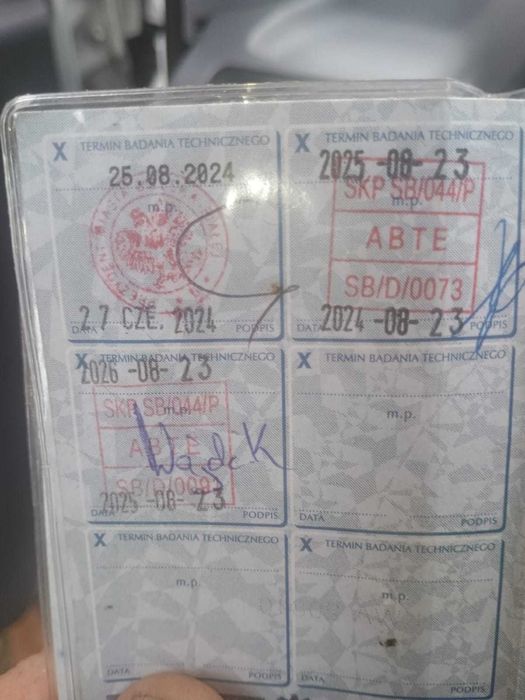 X TERMIN BADANIA TECHNICZNEGO
25.08.2024
m.p.
27 CZE. 2024
DATA PODPIS
X TERMIN BADANIA TECHNICZNEGO
2025-08-23
m.p.
SKP SB/044/P
ABTE
SB/D/0073
2024-08-23
DATA PODPIS
X TERMIN BADANIA TECHNICZNEGO
2026-08-23
m.p.
SKP SB/044/P
ABTE
2025-08-23
DATA PODPIS
X TERMIN BADANIA TECHNICZNEGO
m.p.
DATA PODPIS
X TERMIN BADANIA TECHNICZNEGO
m.p.
DATA PODPIS
X TERMIN BADANIA TECHNICZNEGO
m.p.
DATA PODPIS